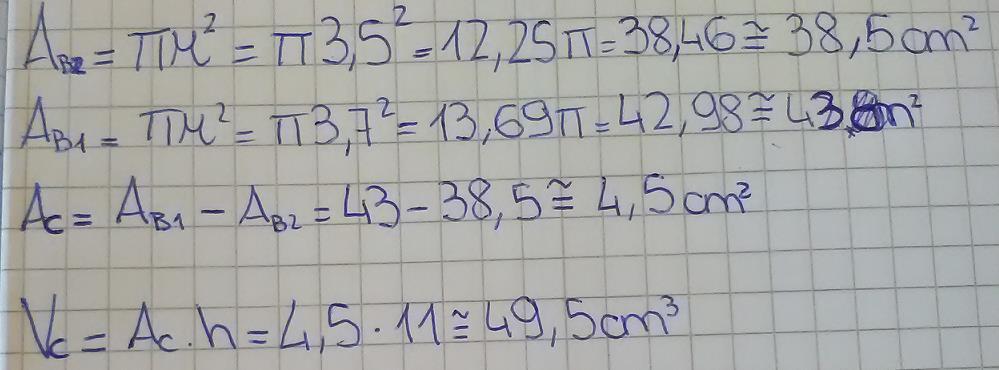 A_B2 = πr² = π3,5² = 12,25π = 38,46 ≅ 38,5cm²
A_B1 = πr² = π3,7² = 13,69π = 42,98 ≅ 43cm²
A_C = A_B1 - A_B2 = 43 - 38,5 ≅ 4,5cm²
V_C = A_C . h = 4,5 . 11 ≅ 49,5cm³